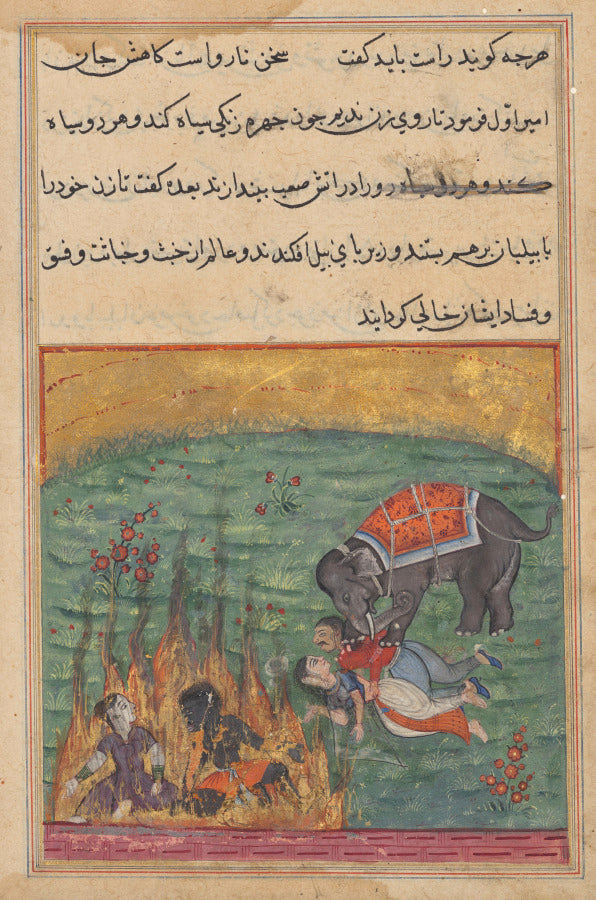 هرچه کویند راست باید کفت سخن ناروا ست کاهش جان
امیر اول فرمود تا روی زن ندیم چون چهره زنکی سیاه کند و هر دو سیاه
کند و هر دو سیاه رو را در اتش صعب بیندازند بعده کفت تا زن خود را
با پیلبان بر هم بستند و زیر پای پیل افکندند و عالم از خبث و خباثت و فسق
و فساد ایشان خالی کردایند